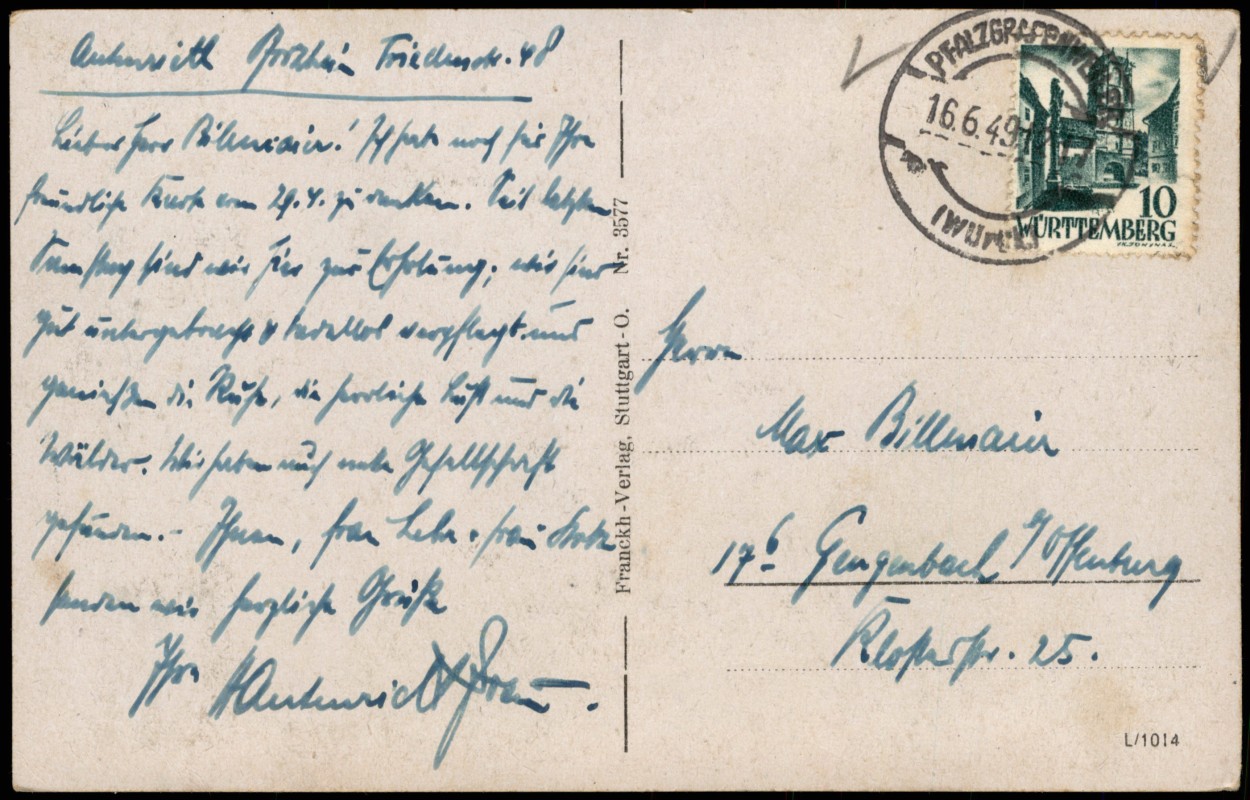 Autenrieth Pforzheim Friedenstr. 48
Lieber Herr Billmaier! Ich habe noch für Ihre
freundliche Karte vom 29.4. zu danken. Seit letzten
Samstag sind wir hier zur Erholung; wir sind
gut untergebracht & tadellos verpflegt und
genießen die Ruhe, die herrliche Luft und die
Wälder. Wir haben auch nette Gesellschaft
gefunden. – Ihnen, Frau Lehr & Frau
senden wir herzliche Grüße
Ihre Autenrieth & Frau.
Franckh-Verlag, Stuttgart-O. Nr. 3577
PFALZGRAFENWEILER
16.6.49
(Württ)
10
WÜRTTEMBERG
Herrn
Max Billmaier
17b Gengenbach b/Offenburg
Klosterstr. 25.
L/1014